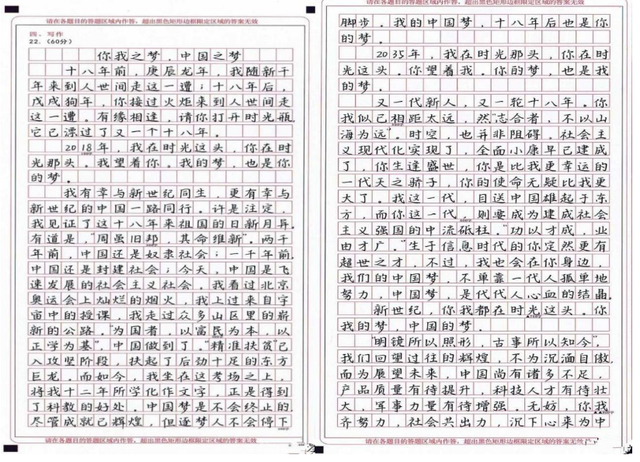 请在各题目的答题区域内作答，超出黑色矩形边框限定区域的答案无效
四、写作
22.（60分）
你我之梦，中国之梦
十八年前，庚辰龙年，我随新千
年来到人世间走这一遭；十八年后，
戊戌狗年，你接过火炬来到人世间走
这一遭。有缘相逢，请你打开时光瓶，
它已漂过了又一个十八年。
2018年，我在时光这头，你在时
光那头，我望着你。我的梦，也是你
的梦。
我有幸与新世纪同生，更有幸与
新世纪的中国一路同行。许是注定，
我见证了这十八年来祖国的日新月异。
有道是，“周虽旧邦，其命维新”。两千
年前，中国还是奴隶社会；一千年前，
中国还是封建社会；今天，中国是飞
速发展的社会主义社会。我看过北京
奥运会上灿烂的烟火，我上过来自宇
宙中的授课，我走过众多山区里的崭
新的公路。“为国者，以富民为本，以
正学为基”，中国做到了。“精准扶贫”已
入攻坚阶段，扶起了后劲十足的东方
巨龙，而如今，我坐在这考场之上，
将我十二年所学化作文字，正是得到
了科教的好处。中国梦是不会终止的，
尽管成就已辉煌，但逐梦人不会停下
请在各题目的答题区域内作答，超出黑色矩形边框限定区域的答案无效
脚步。我的中国梦，十八年后也是你
的梦。
2035年，我在时光那头，你在时
光这头。你望着我。你的梦，也是我
的梦。
又一代新人，又一轮十八年。你
我似已相距太远，然“志合者，不以山
海为远”。时空，也并非阻碍。社会主
义现代化实现了，全面小康早已建成
了，你生逢盛世，你是比我更幸运的
一代天之骄子，你的使命无疑比我更
大了。我这一代，目送中国雄起于东
方，而你这一代，则要成为建成社会
主义强国的中流砥柱。“功以才成，业
由才广。”生于信息时代的你定然更有
超世之才，不过，我也会在你身边，
我们的中国梦，不单靠一代人孤单地
努力，中国梦，是代代人心血的结晶。
新世纪，你我都在时光这头。你
我的梦，中国的梦。
“明镜所以照形，古事所以知今”。
我们回望过往的辉煌，不为沉湎自傲，
而为展望未来，中国尚有诸多不足，
产品质量有待提升，科技人才有待壮
大，军事力量有待增强。无妨，你我
齐努力，社会共出力，沉下心来为中
请在各题目的答题区域内作答，超出黑色矩形边框限定区域的答案无效